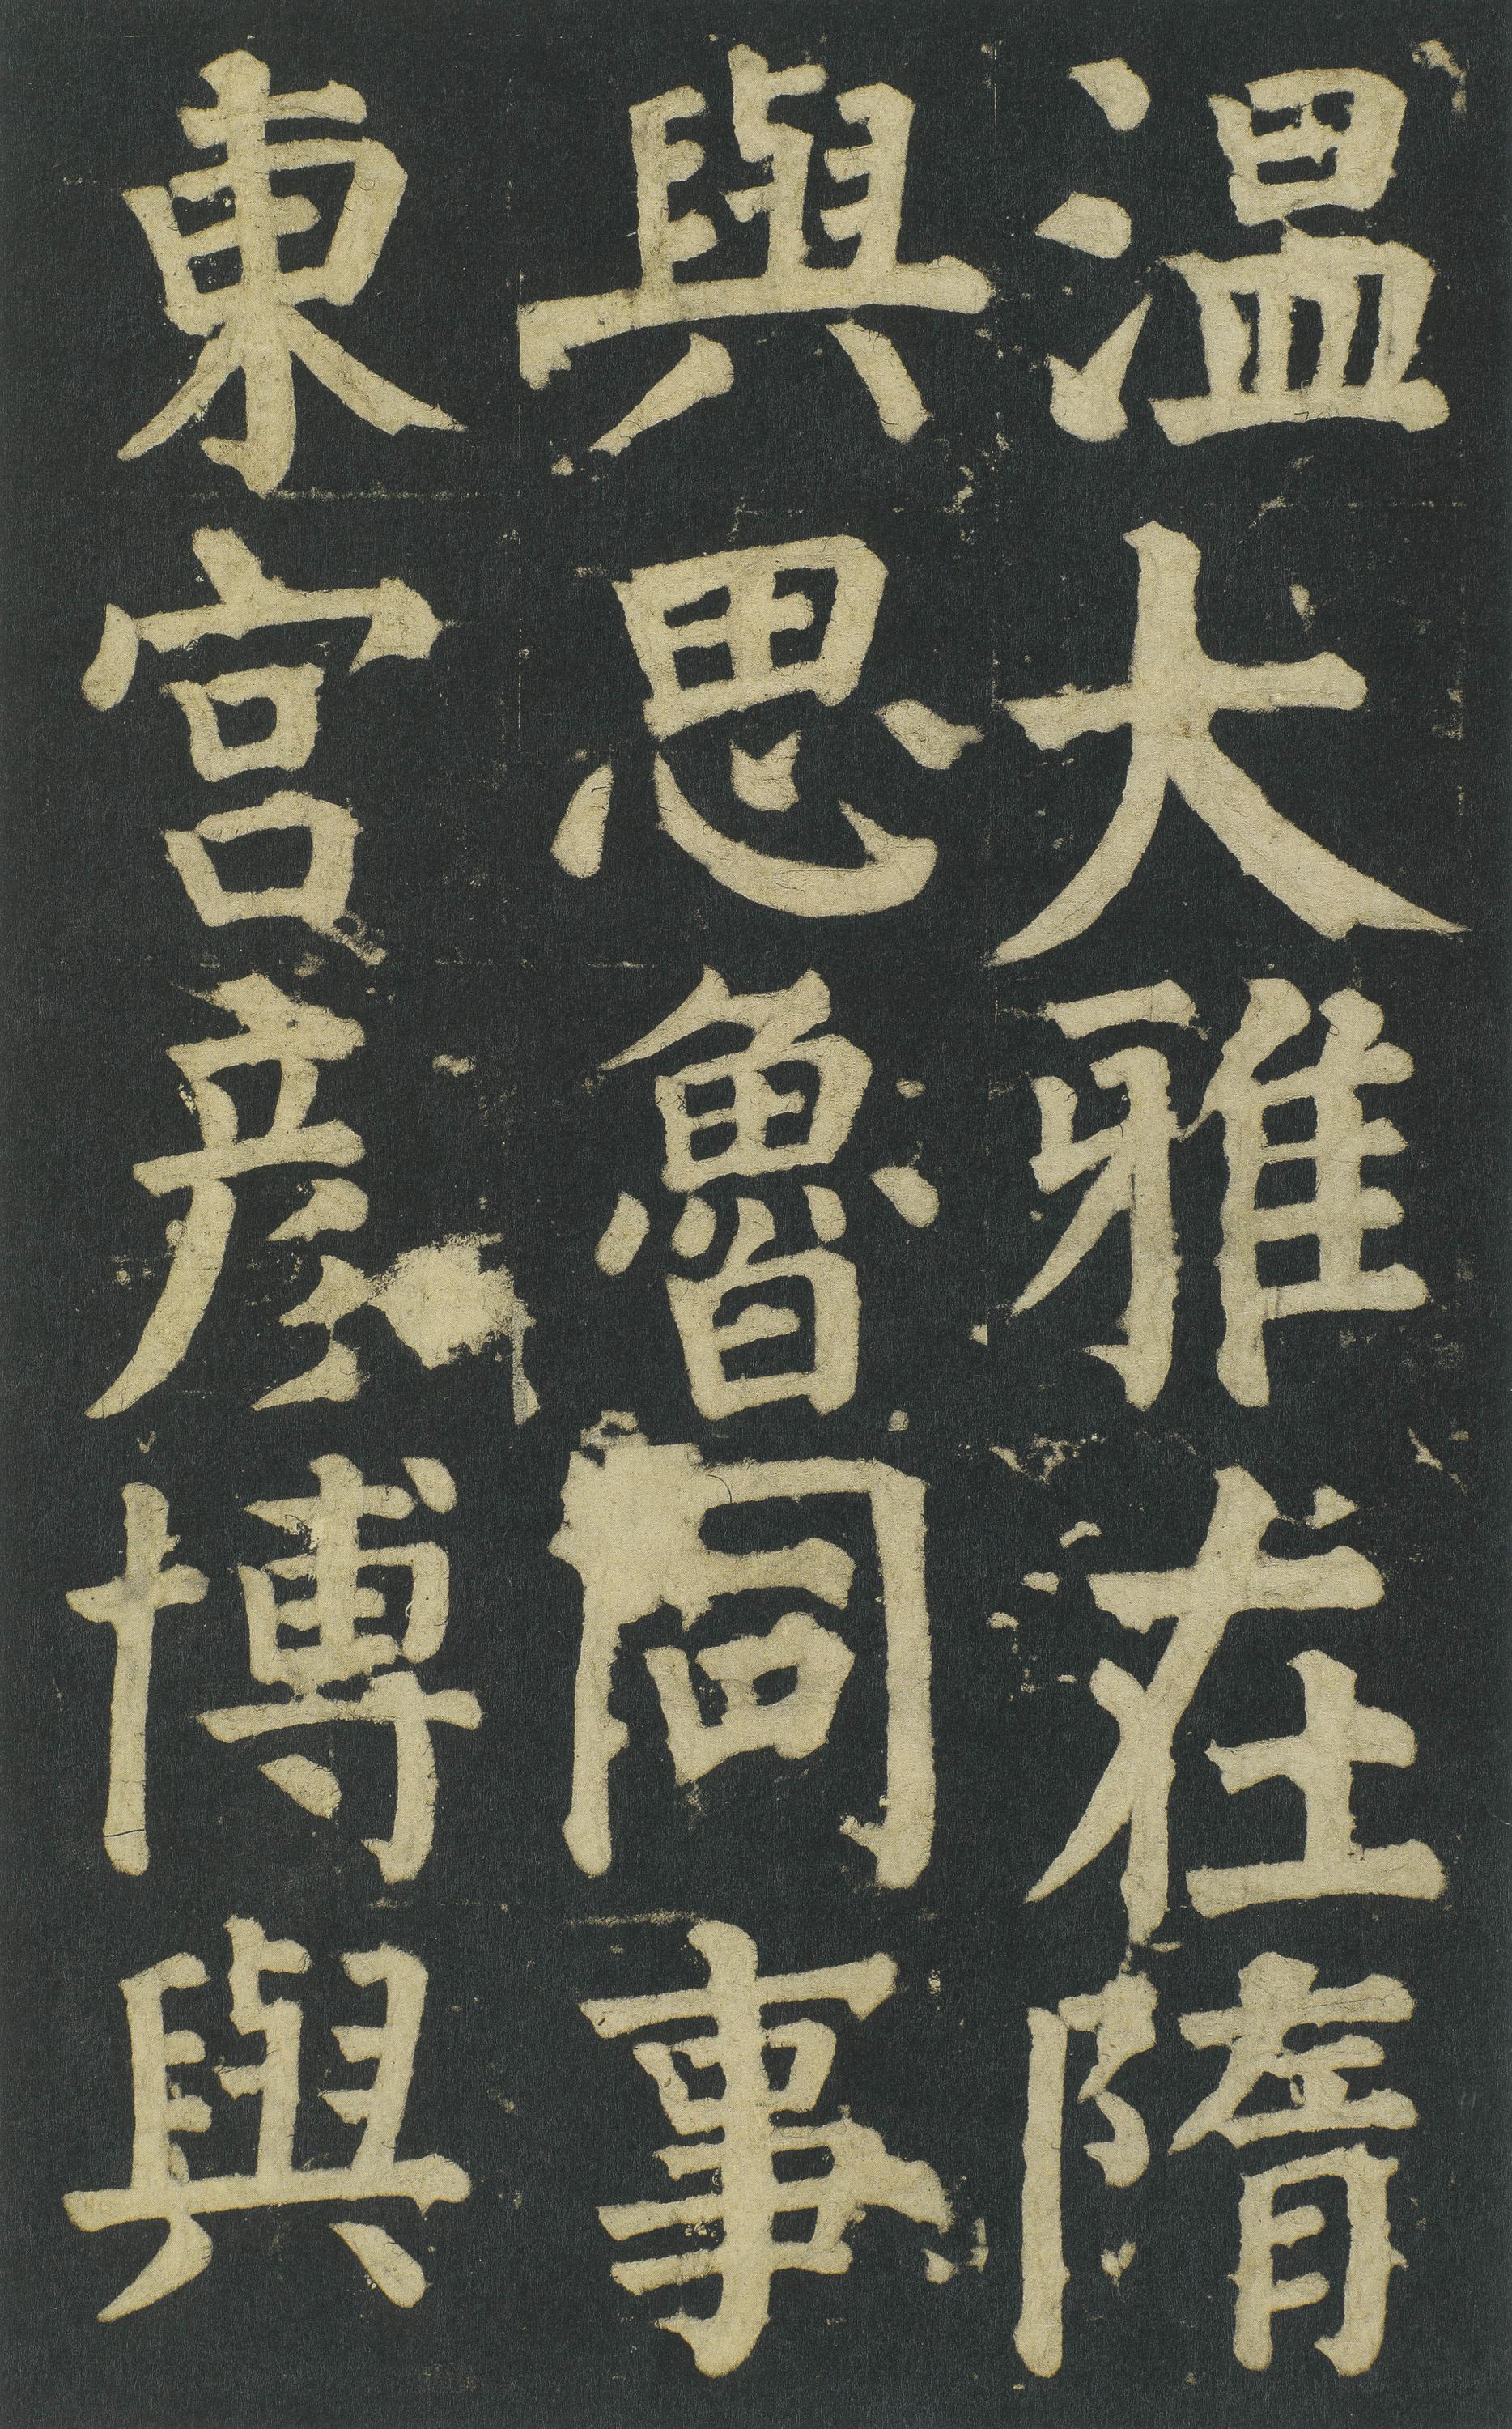 温大雅在隋
與思魯同事
東宫彦博與